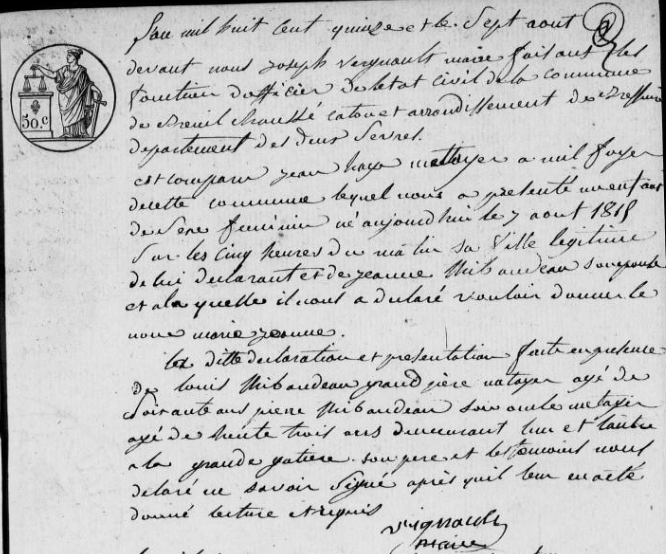 Lan mil huit Cent quinze et le Sept aout
devant nous joseph vergnault maire faisant les
fonction dofficier de letat civil de la commune
de Breuil chaussé caton et arrondissement de Bressuire
departement des deux Sevres.
est comparu jean haye metayer a mil foyer
de cette commune lequel nous a presenté un enfant
de Sexe feminin né aujourdhui le 7 aout 1815
Sur les cinq heures du matin sa fille legitime
de lui declarant et de jeanne thibaudeau son epouse
et a la quelle il nous a declaré vouloir donner le
nom marie jeanne.
les ditte declaration et presentation faite en presence
de louis thibaudeau grand père metayer agé de
Soixante ans pierre thibaudeau son oncle metayer
agé de trente trois ans demeurant lun et lautre
a la grande gatiere. son pere et les temoins nous
declaré ne savoir Signé après quil leur en a été
donné lecture et requis
vergnault
Maire
50.c